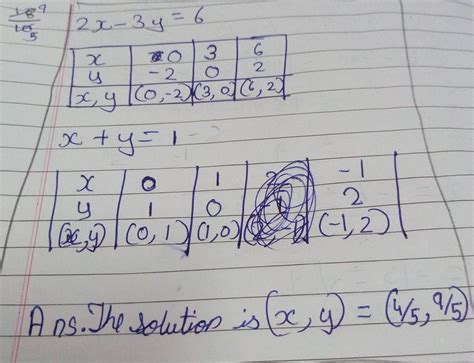 18 9
10 5
2x-3y=6
x 0 3 6
y -2 0 2
x,y (0,-2) (3,0) (6,2)
x+y=1
x 0 1 -1
y 1 0 2
(x,y) (0,1) (1,0) (-1,2)
Ans. The solution is (x,y) = (4/5, 9/5)